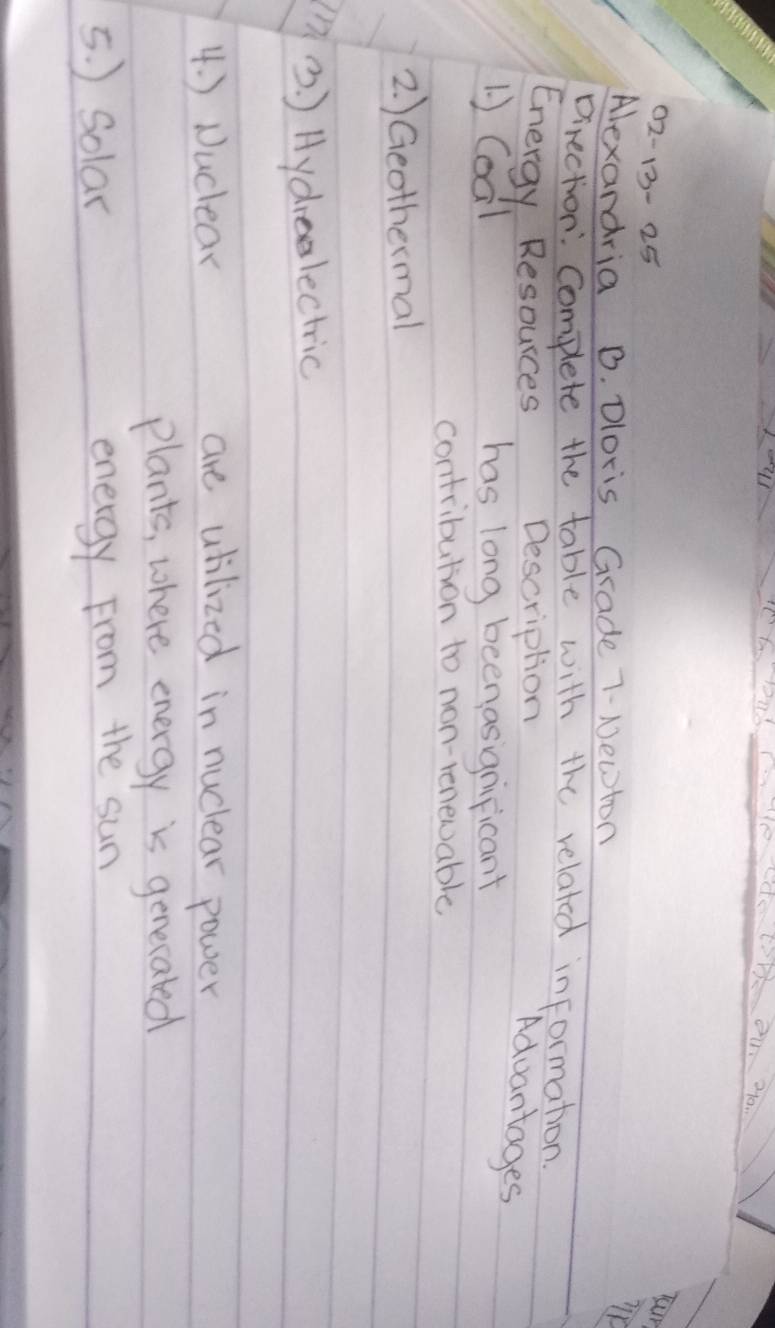 02-13-25
Alexandria B. Dloris Grade 7-Newton
Direction: Complete the table with the related information.
Energy Resources Description Advantages
1.) Coal has long been, a significant
contribution to non-renewable
2.) Geothermal
3.) Hydroelectric
4.) Nuclear are utilized in nuclear power
plants, where energy is generated
5.) Solar energy From the sun